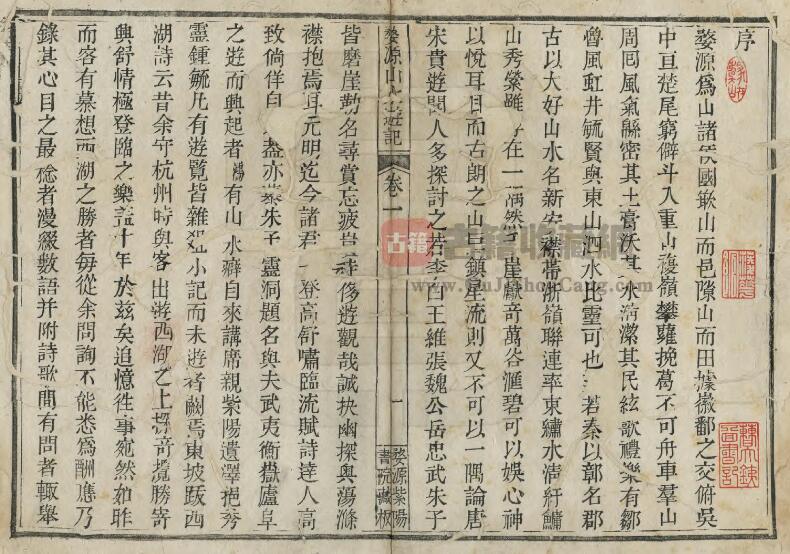 序
婺源爲山諸矦國嶔山而邑隙山而田據徽鄱之交俯吳
中亘楚尾窮僻斗入重山複嶺攀蘿挽葛不可舟車羣山
周囘風氣緜密其土高沃其水淸潔其民絃歌禮樂有鄒
魯風虹井毓賢與東山泗水比靈可也若秦以鄣名郡
古以大好山水名新安襟帶浙嶺聯連率東繡水淸紆鱅
山秀縈雖在一隅然千崖獻竒萬谷滙碧可以娛心神
以悅耳目而古朗之山巨鎭星流則又不可以一隅論唐
宋貴遊聞人多探討之若李白王維張魏公岳忠武朱子
婺源山水遊記
卷一
一
婺源紫陽
書院藏板
皆磨崖勒名尋賞忘疲豈侈遊觀哉誠抉幽探輿蕩滌
襟抱焉耳元明迄今諸君登高舒嘯臨流賦詩達人高
致倘佯自盡亦以朱子靈洞題名與夫武夷衡嶽廬阜
之遊而興起者有山水癖自來講席親紫陽遺澤挹秀
靈鍾毓凡有遊覽皆雜小記而未遊者闕焉東坡跋西
湖詩云昔余守杭州時與客出遊西湖之上探竒攬勝寄
興舒情極登臨之樂葢十年於兹矣追憶徃事宛然如昨
而客有慕想西湖之勝者每從余問詢不能悉爲酬應乃
錄其心目之最稔者漫綴數語并附詩歌聞有問者輒舉
古籍
古籍收藏網
www.GuJiShouCang.com